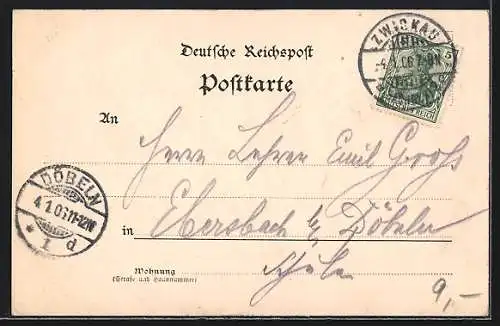 Deutsche Reichspost
Postkarte
ZWICKAU
4.1.06.7-8N
An
Herrn Lehrer Emil Groß
DÖBELN
4.1.06.11-12N
* 1 d
in Ebersbach b/ Döbeln
Schule
Wohnung
(Straße und Hausnummer)
9,-